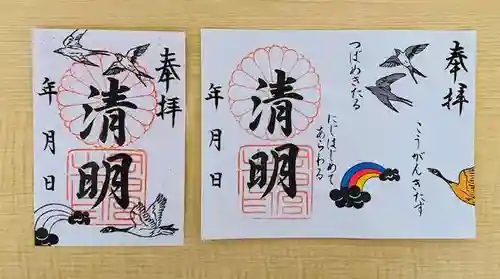 奉拝
清明
年月日
奉拝
つばめきたる
こうがんきたす
にじはじめて
あらわる
清明
年月日